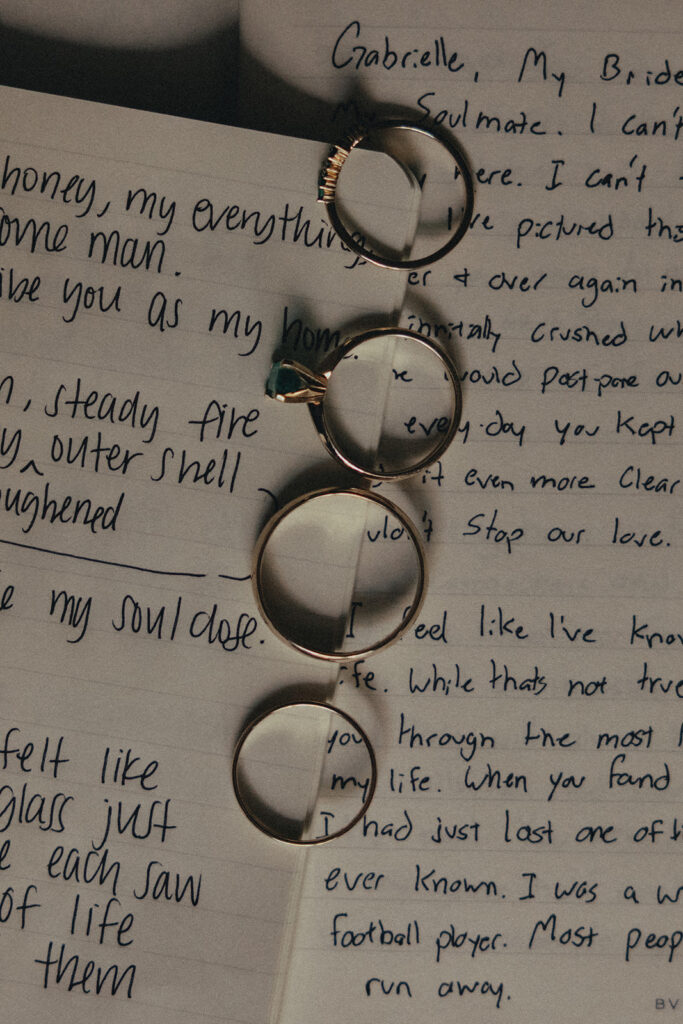 honey, my everything,
ome man.
ibe you as my home.
n, steady fire
y ^ outer shell
oughened
e my soul close.
felt like
glass just
e each saw
of life
them
Gabrielle, My Bride
My Soulmate. I can't
here. I can't
I've pictured this
er & over again in
innitally crushed wh
would postpone ou
every day you kept
it even more clear
uldn't stop our love.
I feel like I've know
life. While thats not true
you through the most
my life. When you found
I had just lost one of
ever known. I was a w
football player. Most peop
run away.
BV